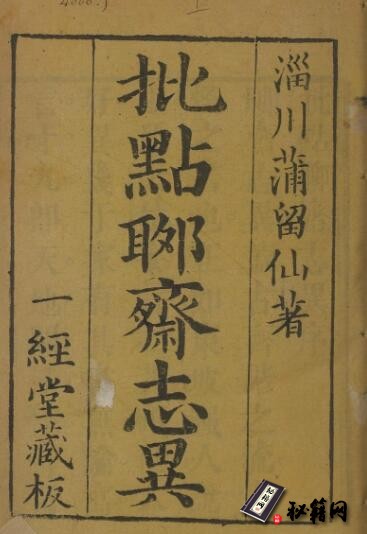 淄川蒲留仙著
批點聊齋志異
一經堂藏板
秘籍网